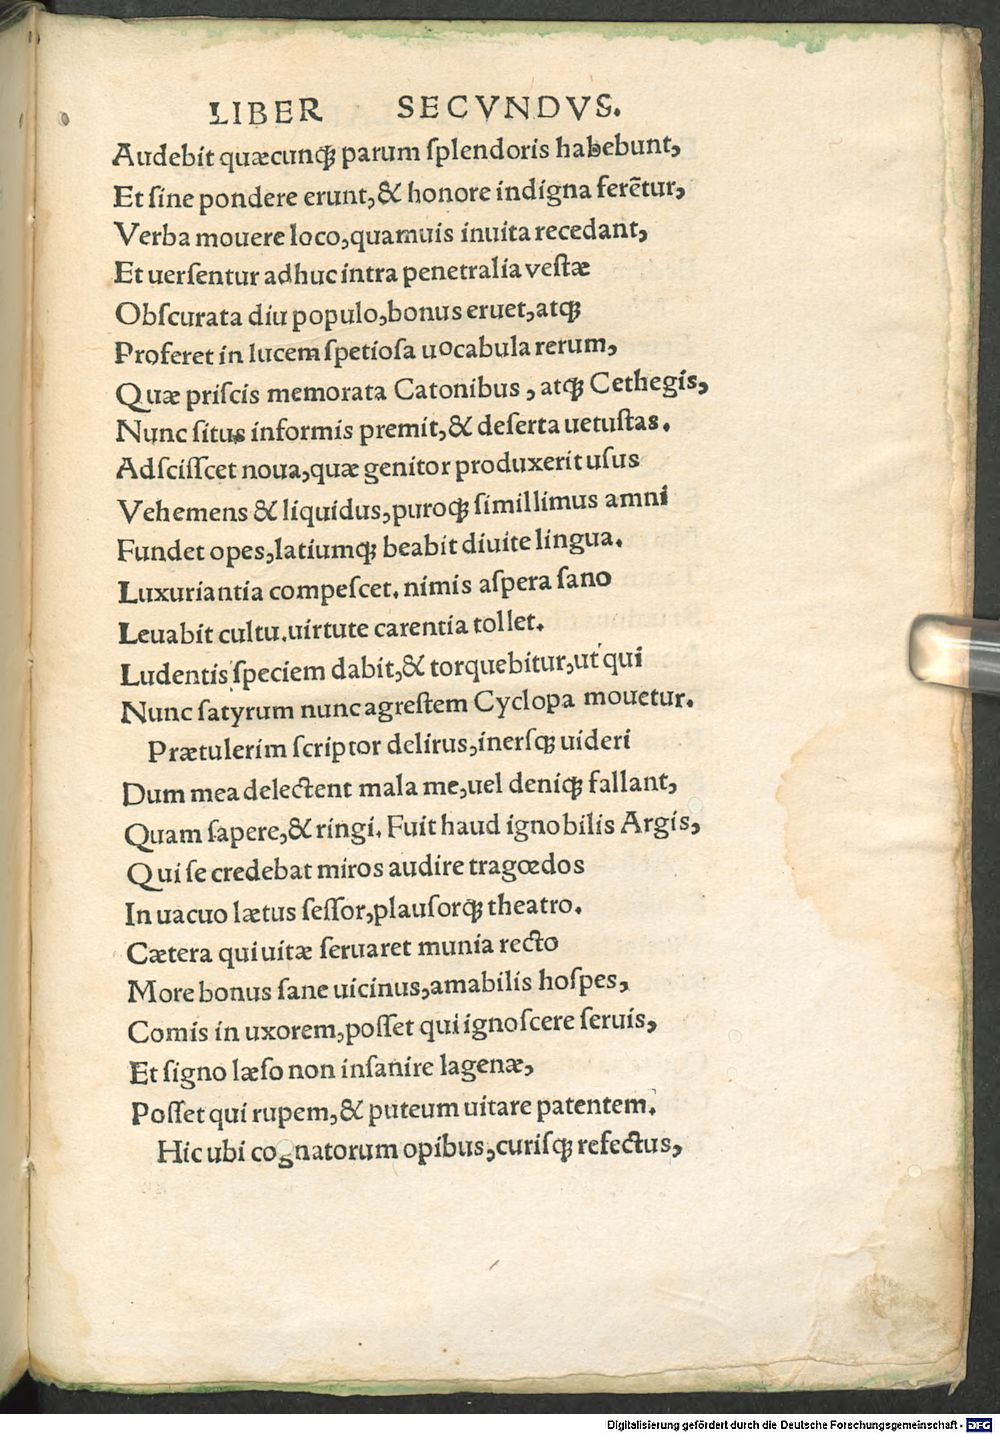 LIBER SECVNDVS.
Audebit quæcunqꝫ parum ſplendoris habebunt,
Et ſine pondere erunt,& honore indigna ferẽtur,
Verba mouere loco,quamuis inuita recedant,
Et uerſentur adhuc intra penetralia veſtæ
Obſcurata diu populo,bonus eruet,atqꝫ
Proferet in lucem ſpetioſa uocabula rerum,
Quæ priſcis memorata Catonibus, atqꝫ Cethegis,
Nunc ſitus informis premit,& deſerta uetuſtas.
Adſciſſcet noua,quæ genitor produxerit uſus
Vehemens & liquidus,puroqꝫ ſimillimus amni
Fundet opes,latiumqꝫ beabit diuite lingua.
Luxuriantia compeſcet. nimis aſpera ſano
Leuabit cultu.uirtute carentia tollet.
Ludentis ſpeciem dabit,& torquebitur,ut qui
Nunc ſatyrum nunc agreſtem Cyclopa mouetur.
Prætulerim ſcriptor delirus,inerſqꝫ uideri
Dum mea delectent mala me,uel deniqꝫ fallant,
Quam ſapere,& ringi. Fuit haud ignobilis Argis,
Qui ſe credebat miros audire tragœdos
In uacuo lætus ſeſſor,plauſorqꝫ theatro.
Cætera qui uitæ ſeruaret munia recto
More bonus ſane uicinus,amabilis hoſpes,
Comis in uxorem,poſſet qui ignoſcere ſeruis,
Et ſigno læſo non inſanire lagenæ,
Poſſet qui rupem,& puteum uitare patentem.
Hic ubi cognatorum opibus,curiſqꝫ refectus,
Digitalisierung gefördert durch die Deutsche Forschungsgemeinschaft - DFG